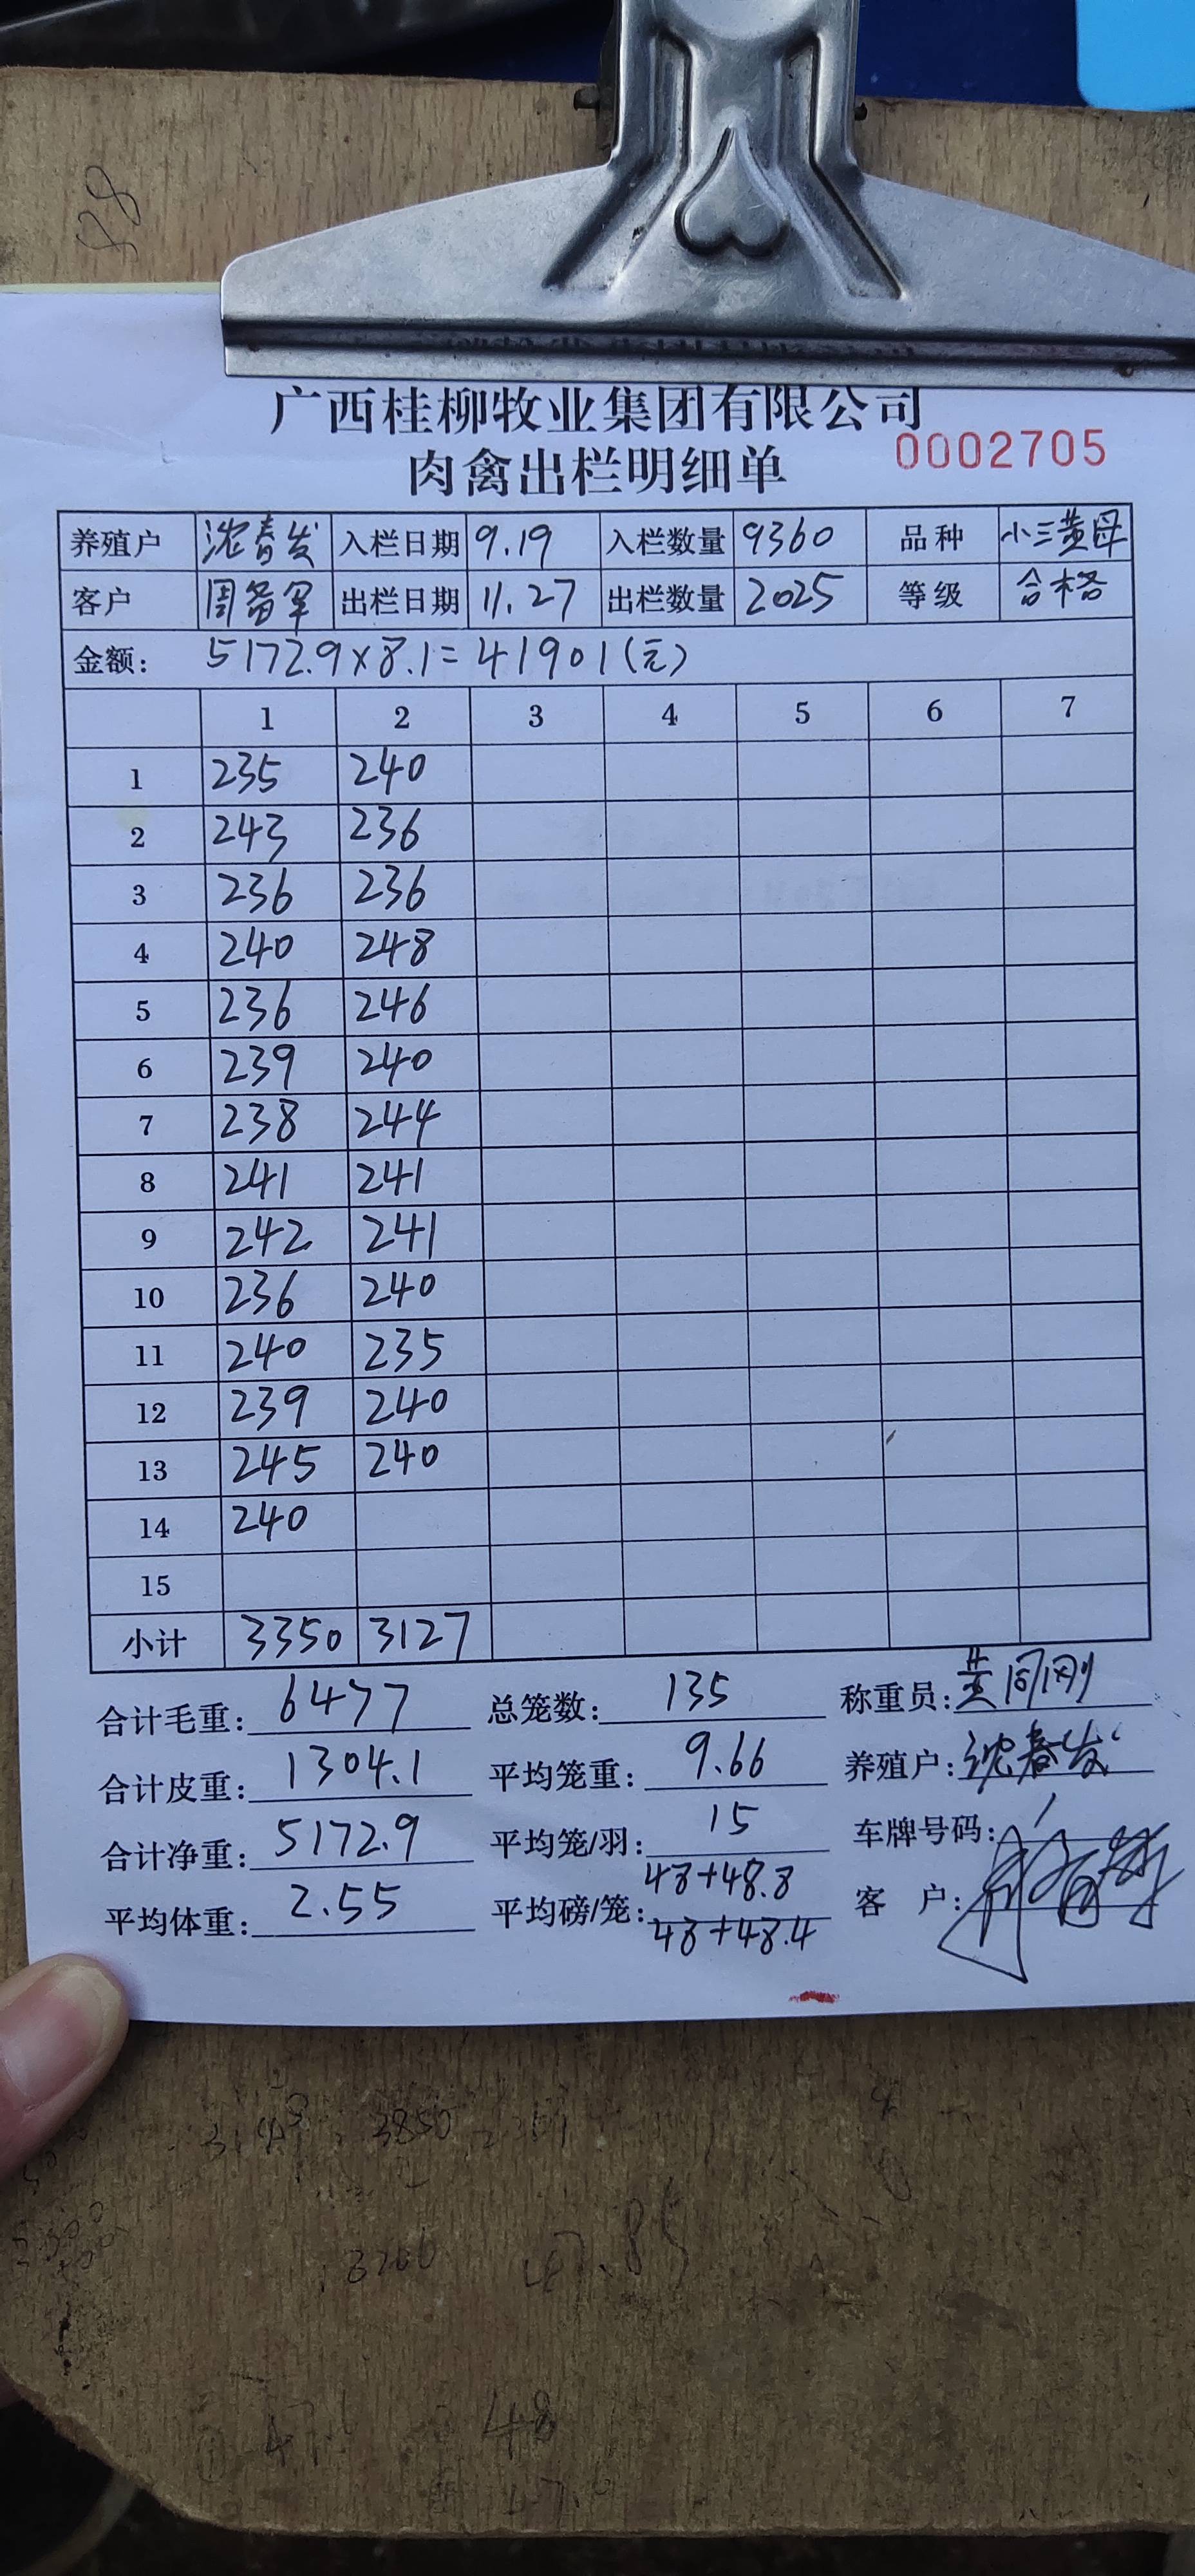 58
广西桂柳牧业集团有限公司
肉禽出栏明细单 0002705
养殖户 沈春发 入栏日期 9.19 入栏数量 9360 品种 小三黄母
客户 周备军 出栏日期 11.27 出栏数量 2025 等级 合格
金额: 5172.9×8.1=41901(元)
1 2 3 4 5 6 7
1 235 240
2 243 236
3 236 236
4 240 248
5 236 246
6 239 240
7 238 244
8 241 241
9 242 241
10 236 240
11 240 235
12 239 240
13 245 240
14 240
15
小计 3350 3127
合计毛重: 6477 总笼数: 135 称重员: 黄同刚
合计皮重: 1304.1 平均笼重: 9.66 养殖户: 沈春发
合计净重: 5172.9 平均笼/羽: 15 车牌号码: /
平均体重: 2.55 平均磅/笼: 48+48.8 客 户:
48+48.4
3850
47.85
48